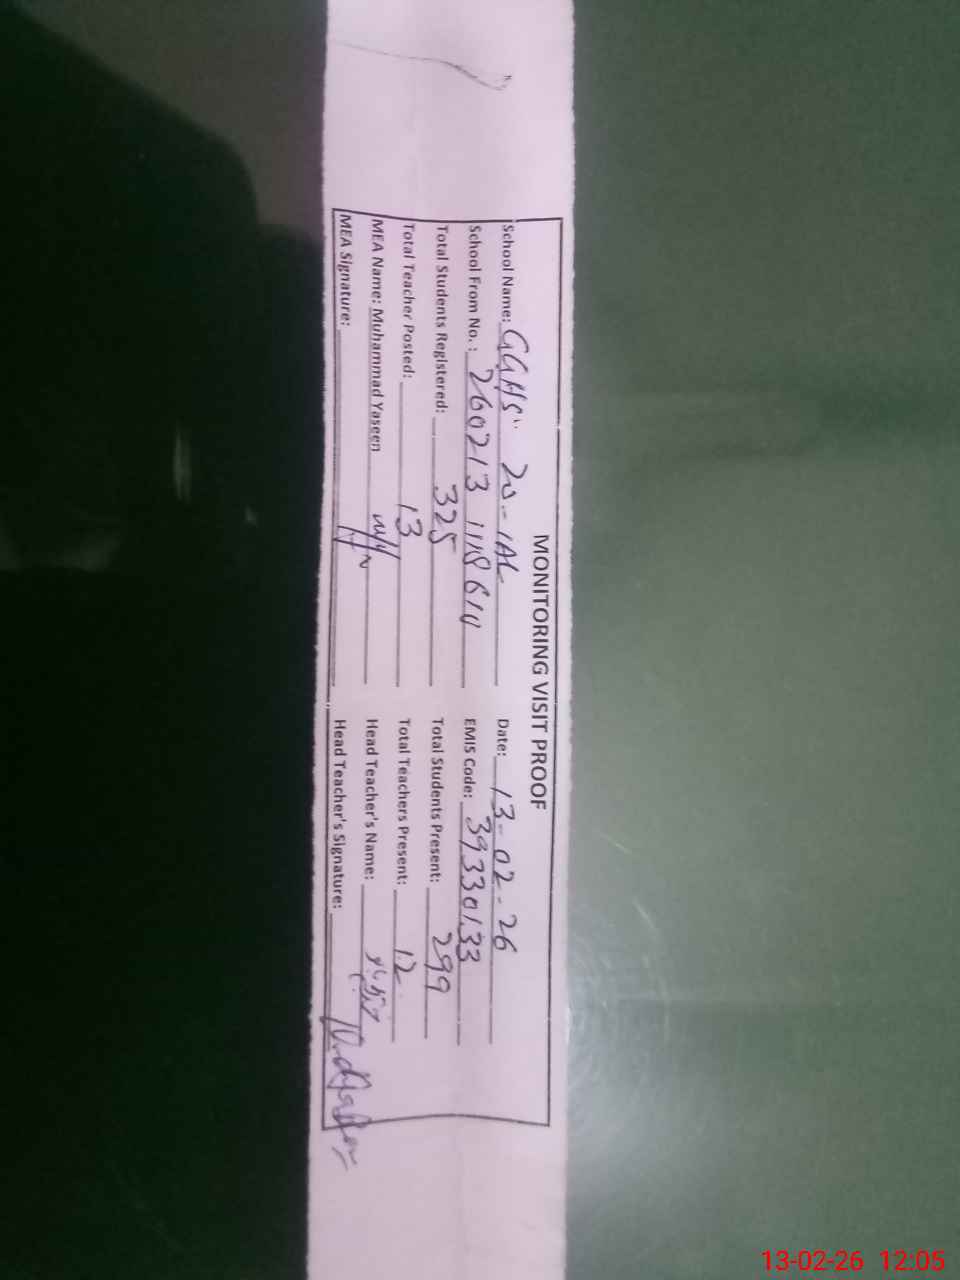 MONITORING VISIT PROOF
School Name: GGHS 20-1AL Date: 13-02-26
School From No.: 260213 118614 EMIS Code: 39330133
Total Students Registered: 325 Total Students Present: 299
Total Teacher Posted: 13 Total Teachers Present: 12
MEA Name: Muhammad Yaseen Head Teacher's Name:
MEA Signature: Head Teacher's Signature:
13-02-26 12:05